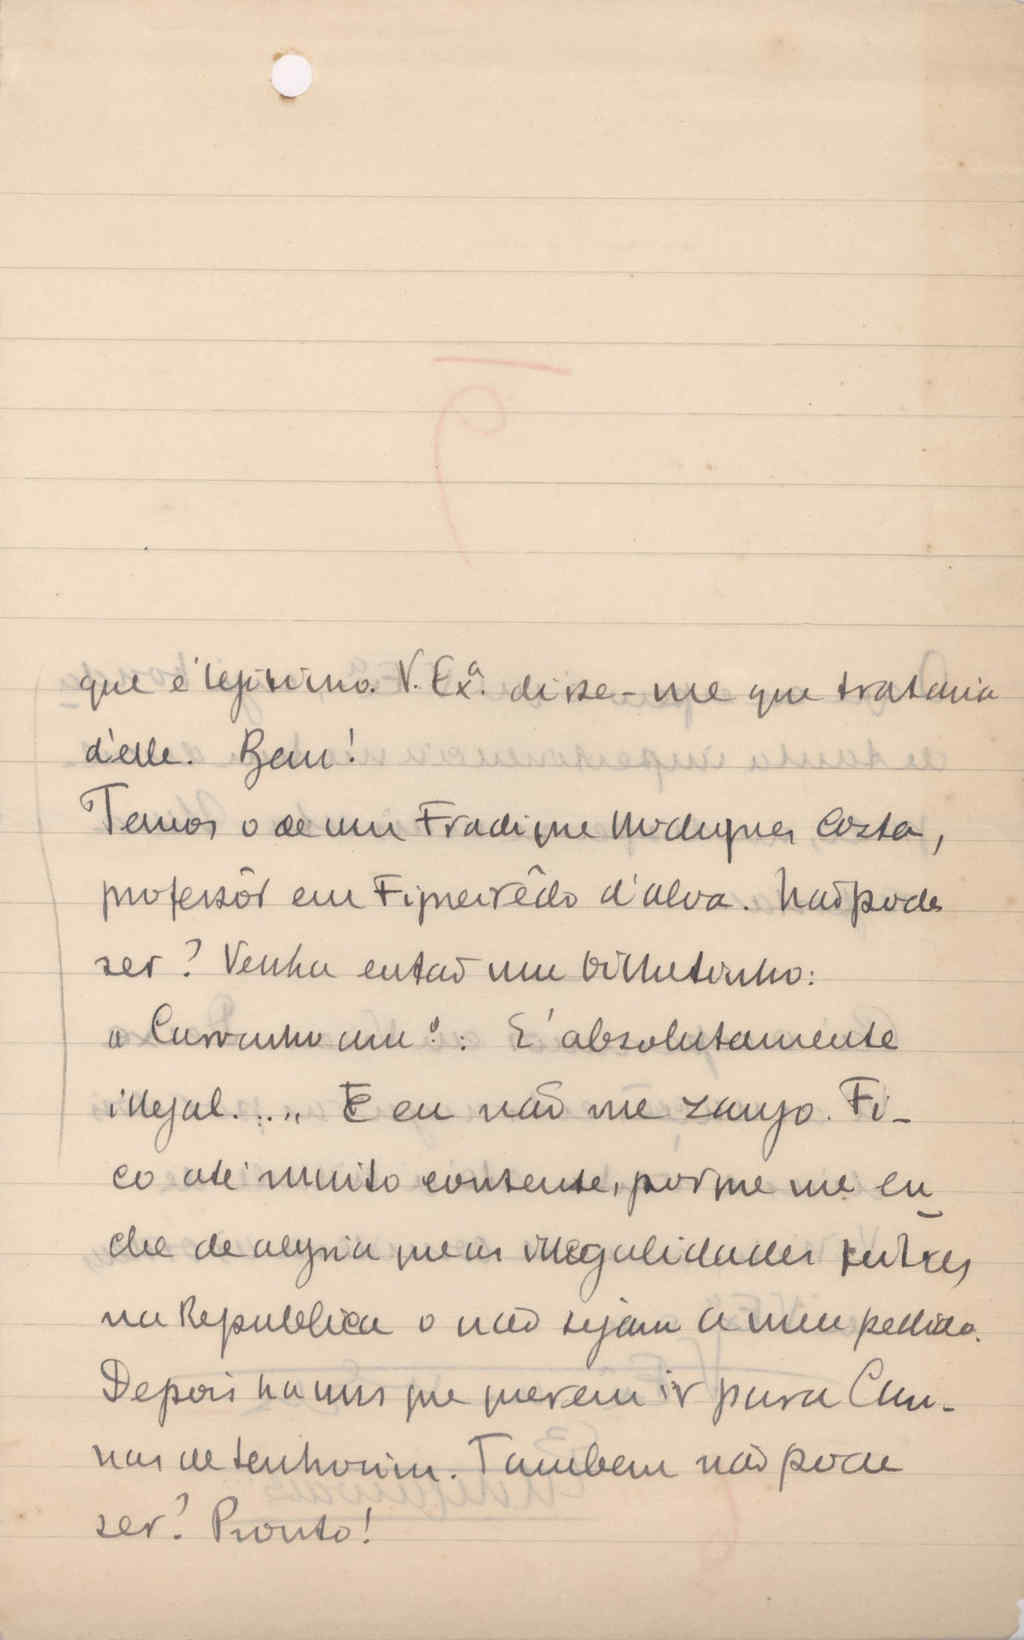 que é legitimo. V. Exª. disse-me que trataria
d'elle. Bem!
Temos o de um Fradique Costa,
professôr em Figueirêdo d'Alva. Não pode
ser? Venha então um bilhetinho:
"Carvinho am.º: E' absolutamente
illegal...." E eu não me zango. Fi-
co até muito contente, porque me en
che de alegria que as illegalidades feitas
na Republica o não sejam a meu pedido.
Depois ha uns que querem ir para Can-
nas de Senhorim. Tambem não pode
ser? Pronto!